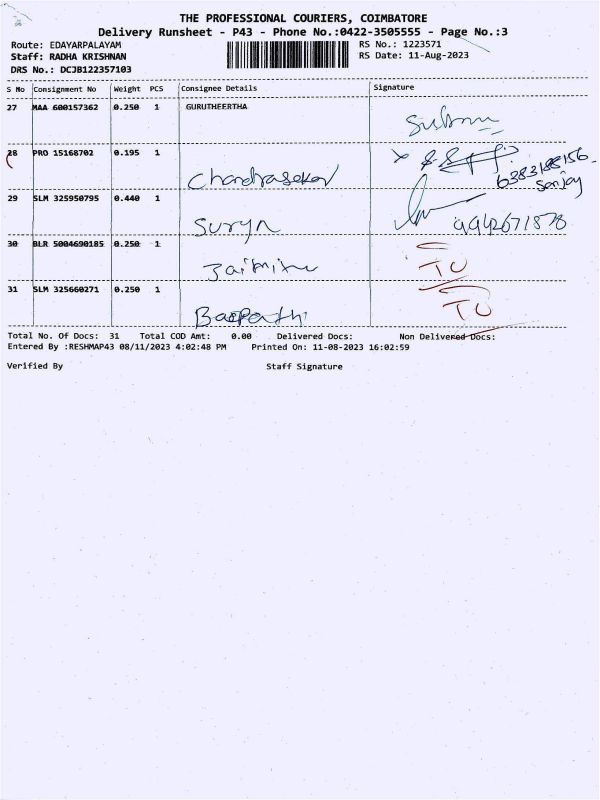 THE PROFESSIONAL COURIERS, COIMBATORE
Delivery Runsheet - P43 - Phone No.:0422-3505555 - Page No.:3
Route: EDAYARPALAYAM
RS No.: 1223571
Staff: RADHA KRISHNAN
RS Date: 11-Aug-2023
DRS No.: DCJB122357103
S No Consignment No Weight PCS Consignee Details Signature
27 MAA 600157362 0.250 1 GURUTHEERTHA
28 PRO 15168702 0.195 1
Chandrasekar
6383188156
Sanjay
29 SLM 325950795 0.440 1
Surya
9942671878
30 BLR 5004690185 0.250 1
TU
31 SLM 325660271 0.250 1
TU
Total No. Of Docs: 31 Total COD Amt: 0.00 Delivered Docs: Non Delivered Docs:
Entered By :RESHMAP43 08/11/2023 4:02:48 PM Printed On: 11-08-2023 16:02:59
Verified By Staff Signature